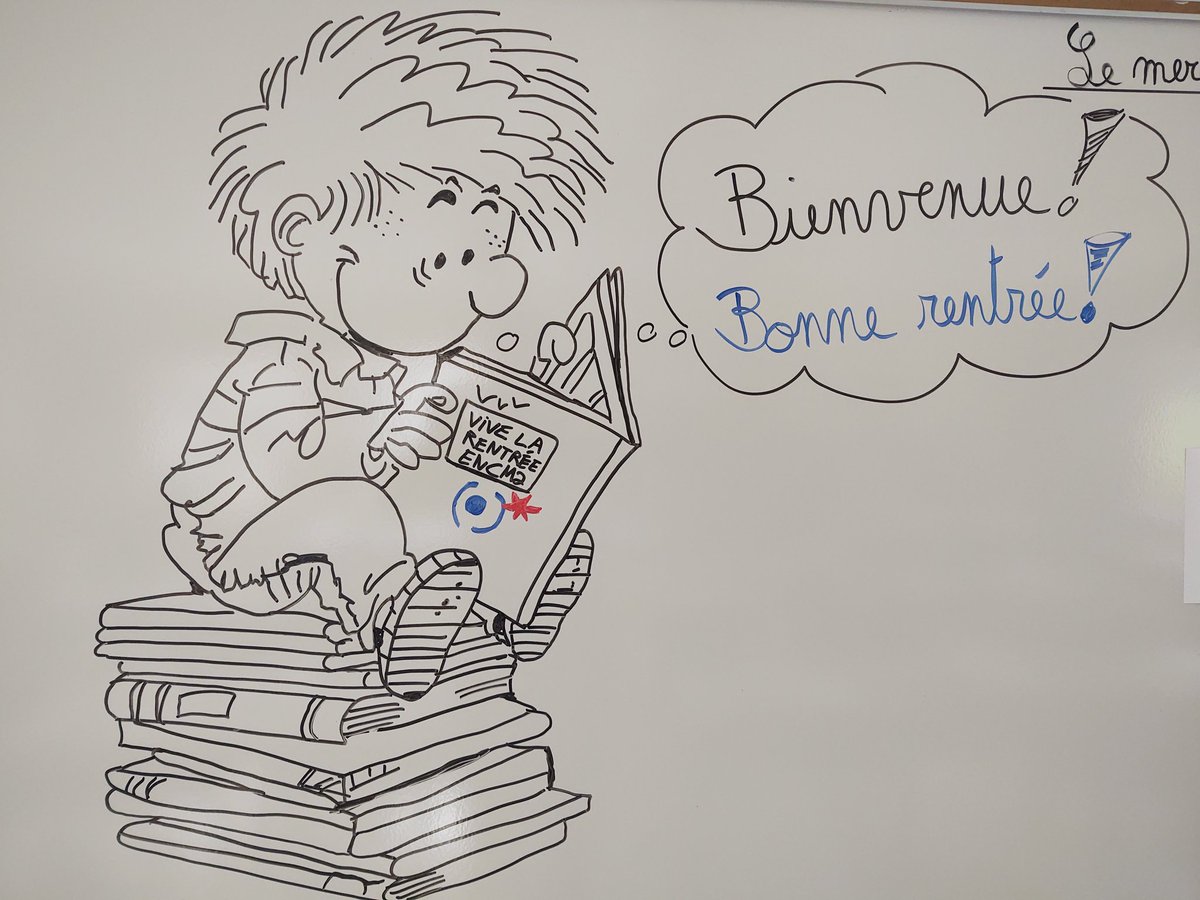 Le mer
Bienvenue!
Bonne rentrée!
VIVE LA
RENTRÉE
ENCM2